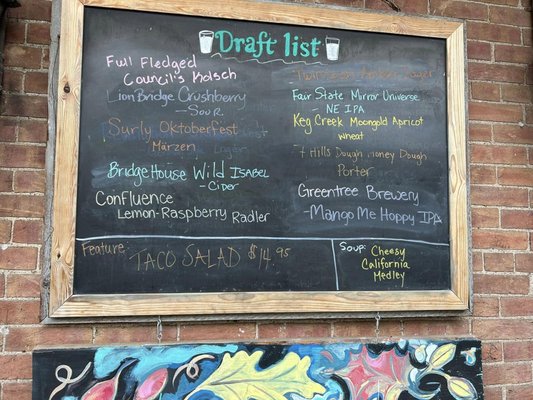 Draft list
Full Fledged
Council's Kolsch
Lion Bridge Crushberry
- Sour
Surly Oktoberfest
Märzen
BridgeHouse Wild Isabel
- Cider
Confluence
Lemon-Raspberry Radler
Amber Lager
Fair State Mirror Universe
NE IPA
Keg Creek Moongold Apricot
Wheat
Hills Dough Money Dough
Porter
Greentree Brewery
- Mango Me Hoppy IPA
Feature:
Taco Salad $14.95
Soup:
Cheesy
California
Medley